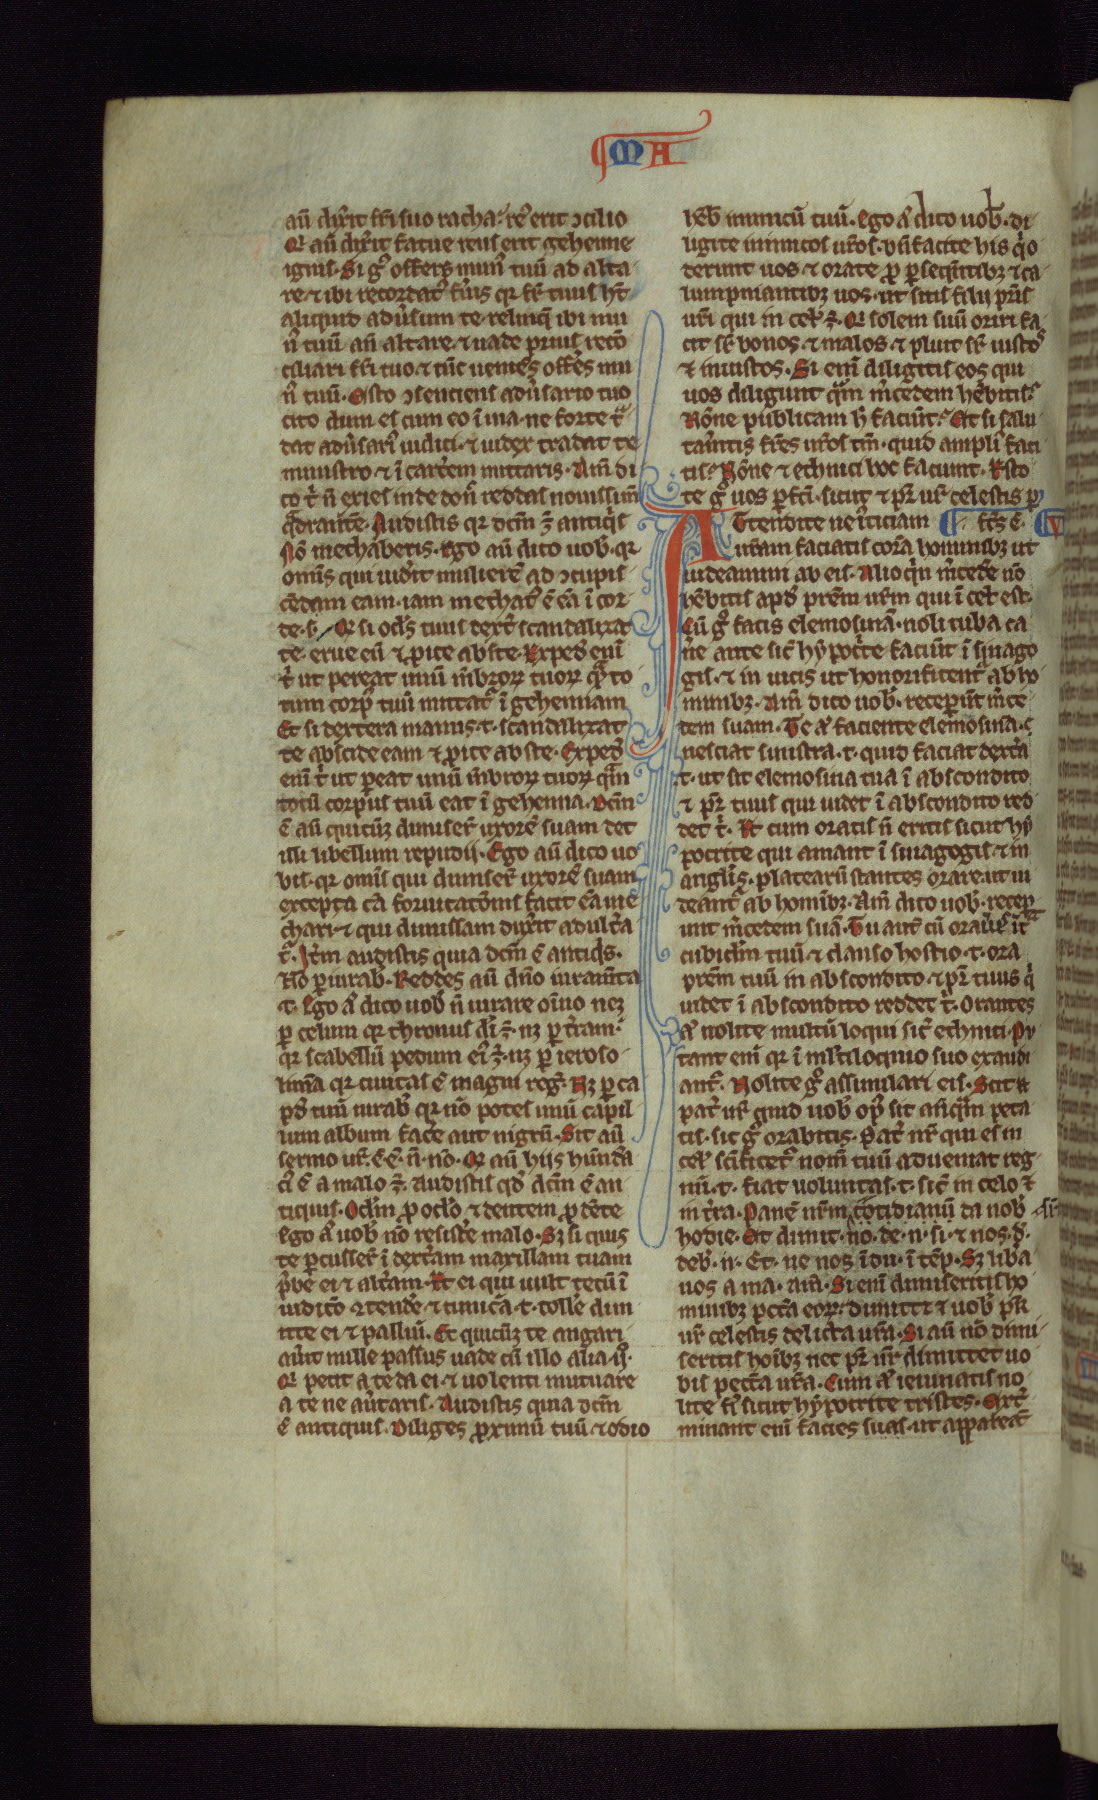 MA
aū dix̄it fr̄i suo racha. re᷒ erit ↄcilio
Qr aū dix̄it fatue reus erit gehenne
ignis. Si gͦ offers mun᷒ tuū ad alta
re. ⁊ ibi recordat᷒ fu᷒is qr fr̄ tuus hт̄
aliquid adūsum te. relinq̄ ibi mu
n᷒ tuū an̄ altare. ⁊ uade prius recō
ciliari fr̄i tuo ⁊ tūc ueniēs offēs mu
n᷒ tuū. Esto ↄsentiens adūsario tuo
cito dum es cum eo ī uia. ne forte t̄
dat adūsari᷒ iudici. ⁊ iudex tradat te
ministro ⁊ ī carc̄em mittaris. Am̄ di
co t̄ n̄ exies inde don̄ reddas nouissim̄
qͣdrantē. Audistis qr dcm̄ ē antiqͥs
Nō mechaberis. Ego aū dico uob̄. qr
omīs qui uid̄it mulierē ad ↄcupis
cēdam eam. iam mechat᷒ ē eā ī cor
de. s. Qr si ocl̄s tuus dext̄ scandalizat
te. erue eū ⁊ ꝓice abs te. Exped᷒ enī
t̄ ut pereat unū m̄brorꝝ tuorꝝ qͣ to
tum corp᷒ tuū mittat᷒ ī gehennam
Et si dextera manus. t. scandalizat
te abscide eam ⁊ ꝓice abs te. Exped᷒
enī t̄ ut ꝑeat unū m̄brorꝝ tuorꝝ qͣm
totū corpus tuū eat ī gehenna. Dcm̄
ē aū quicūqꝫ dimiser᷒ uxorē suam det
illi libellum repudij. Ego aū dico uo
bis. qr omīs qui dimiser᷒ uxorē suam
excepta cā fornicatōnis facit eā me
chari. ⁊ qui dimissam dux̄it adult̄a
t᷒. It̄m audistis quia dcm̄ ē antiqͥs.
No ꝑiurab᷒. Reddes aū dn̄o iuram̄ta
t. Ego aͫ dico uob̄ n̄ iurare oīno neqꝫ
ꝑ celum qr thronus dī ē. nꝫ ꝑ t̄ram.
qr scabellū pedum ei᷒ ē. nꝫ ꝑ ieroso
limā qr ciuitas ē magni reg᷒. Nꝫ ꝑ ca
pᷣd tuū iurab᷒ qr nō potes unū capil
lum album fac̄e aut nigrū. Sit aū
sermo ur̄. ē ē. n̄. nō. Qr aū hijs hūnda
ci᷒ ē a malo ē. Audistis qd᷒ dcm̄ ē an
tiquis. Oclm̄ ꝓ oclo᷒ ⁊ dentem ꝓ dēte
Ego aͫ uob̄ nō resist̄e malo. Sꝫ si quis
te percusser᷒ ī dext̄am maxillam tuam
p̄be ei ⁊ alt̄am. Et ei qui uult tecū ī
iudico ↄtend̄e ⁊ tunicā. t. tolle dim
itte ei ⁊ palliū. Et quicūqꝫ te angari
aūit mille passus uade cū illo alia ij.
Qr petit a te da ei. ⁊ uolenti mutuare
a te ne aūtaris. Audistis quia dcm̄
ē antiquis. Diliges ꝓximū tuū ⁊ odio
heb̄ inimicū tuū. Ego aͫ dico uob̄. di
ligite inimicos ur̄os. bn̄facite his qͥ o
derunt uos ⁊ orate ꝓ ꝑseqn̄tibꝫ ⁊ ca
lumpniantibꝫ uos. ut sitis filij pr̄is
ur̄i qui in cel᷒ ē. Qr solem suū oriri fa
cit sr̄ bonos. ⁊ malos ⁊ pluit sr̄ iustoˢ
⁊ iniustos. Si enī diligitis eos qui
uos diligunt qͣm m̄cedem heb̄itis.
Nōne publicani h̄ faciūt. Et si salu
taūitis fr̄es ur̄os tm̄. quid ampli᷒ faci
tis. Nōne ⁊ ethnici hoc faciunt. Esto
te gͦ uos ꝑfcī. sicut ⁊ pr̄ ur̄ celestis ꝑ
Attendite ne ī᷒ticiam fcs ē. V
ur̄am faciatis corā hominibꝫ ut
uideamini ab eis. Alioqͥn m̄cedē nō
heb̄itis apd᷒ pr̄em ur̄m qui ī cel᷒ est.
Cū gͦ facis elemosinā. noli tuba ca
n̄e ante sic̄ hypoc̄te faciūt ī sinago
gis. ⁊ in uicis ut honorificent᷒ ab ho
minibꝫ. Am̄ dico uob̄. receper̄t m̄ce
dem suam. Te aͫ faciente elemosinā.
nesciat sinistra. t. quid faciat dext̄a
t. ut sit elemosina tua ī abscondito
⁊ pr̄ tuus qui uidet ī abscondito red
det t̄. Et cum oratis n̄ eritis sicut hy
pocrite qui amant ī sinagogis. ⁊ in
anglis. platearū stantes orare. ut ui
deant᷒ ab hominbꝫ. Am̄ dico uob̄. recep
unt m̄cedem suā. Tu aut̄ cū oraūis īt᷒
cubiclm̄ tuū ⁊ clauso hostio. t. ora
pr̄em tuū in abscondito. ⁊ pr̄ tuus qͥ
uidet ī abscondito reddet t̄. Orantes
aͫ nolite multū loqui sic̄ ethnici. Pu
tant enī qr ī ml̄tiloquio suo exaudi
ant᷒. Nolite gͦ assimilari eis. Scit
pat᷒ ur̄ quid uob̄ op᷒ sit an̄qͣm peta
tis. sic gͦ orabitis. Pat᷒ nr̄ qui es in
cel᷒ scīficet᷒ nom̄ tuū adueniat reg
nū. t. fiat uoluntas. t. sic̄ in celo ⁊
in t̄ra. Panē nr̄m cotidianū da nob̄
hodie. Et dimit. no. de. n. si. ⁊ nos. d.
deb᷒. n. Et. ne nos. īdu. ī tēp. Sꝫ liba
nos a ma. am̄. Si enī dimiseritis ho
minibꝫ pecc̄a eorꝝ. dimittet ⁊ uob̄ pr̄
ur̄ celestis delicta ur̄a. Si aū nō dimi
seritis hoībꝫ nec pr̄ ur̄ dimittet uo
bis pecc̄a ur̄a. Cum aͫ ieiunatis no
lite fi᷒ sicut hypocrite tristes. Ext̄
minant enī facies suas. ut appareāt